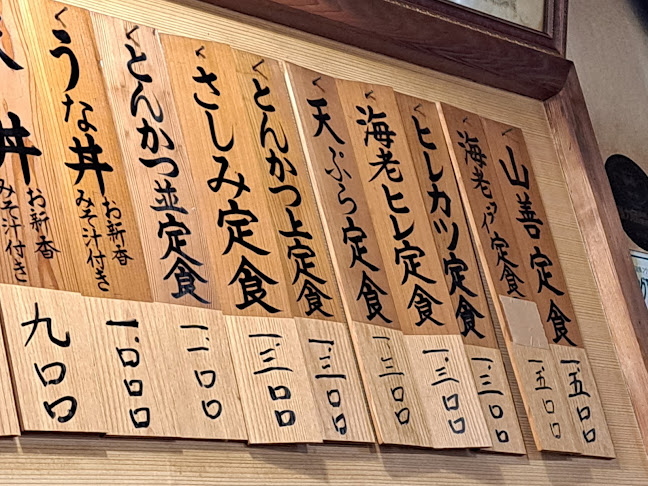 山善定食
一.五〇〇
海老フライ定食
一.五〇〇
ヒレカツ定食
一.三〇〇
海老ヒレ定食
一.三〇〇
天ぷら定食
一.三〇〇
とんかつ上定食
一.三〇〇
さしみ定食
一.三〇〇
とんかつ並定食
一.一〇〇
うな丼
お新香
みそ汁付き
一.〇〇〇
丼
お新香
みそ汁付き
九〇〇